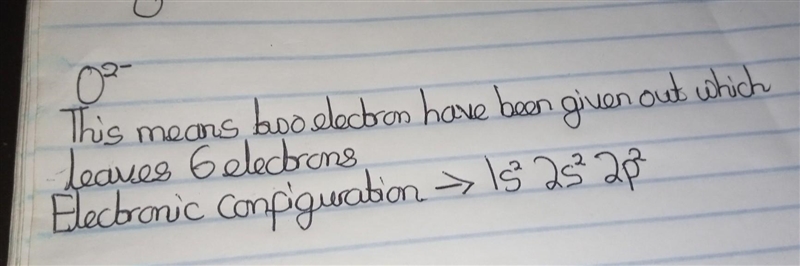 O²⁻
This means two electron have been given out which
leaves 6 electrons
Electronic configuration → 1s² 2s² 2p²